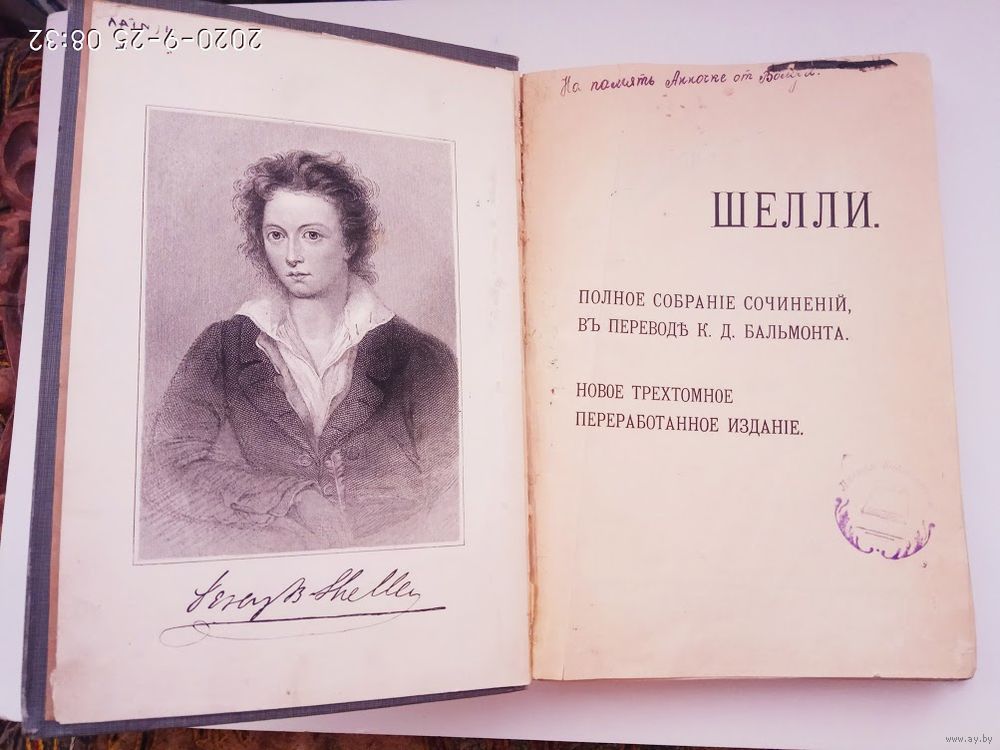 2020-9-25 08:32
Percy B Shelley
На память Анночке от
ШЕЛЛИ.
ПОЛНОЕ СОБРАНІЕ СОЧИНЕНІЙ,
ВЪ ПЕРЕВОДѢ К. Д. БАЛЬМОНТА.
НОВОЕ ТРЕХТОМНОЕ
ПЕРЕРАБОТАННОЕ ИЗДАНІЕ.
www.ay.by